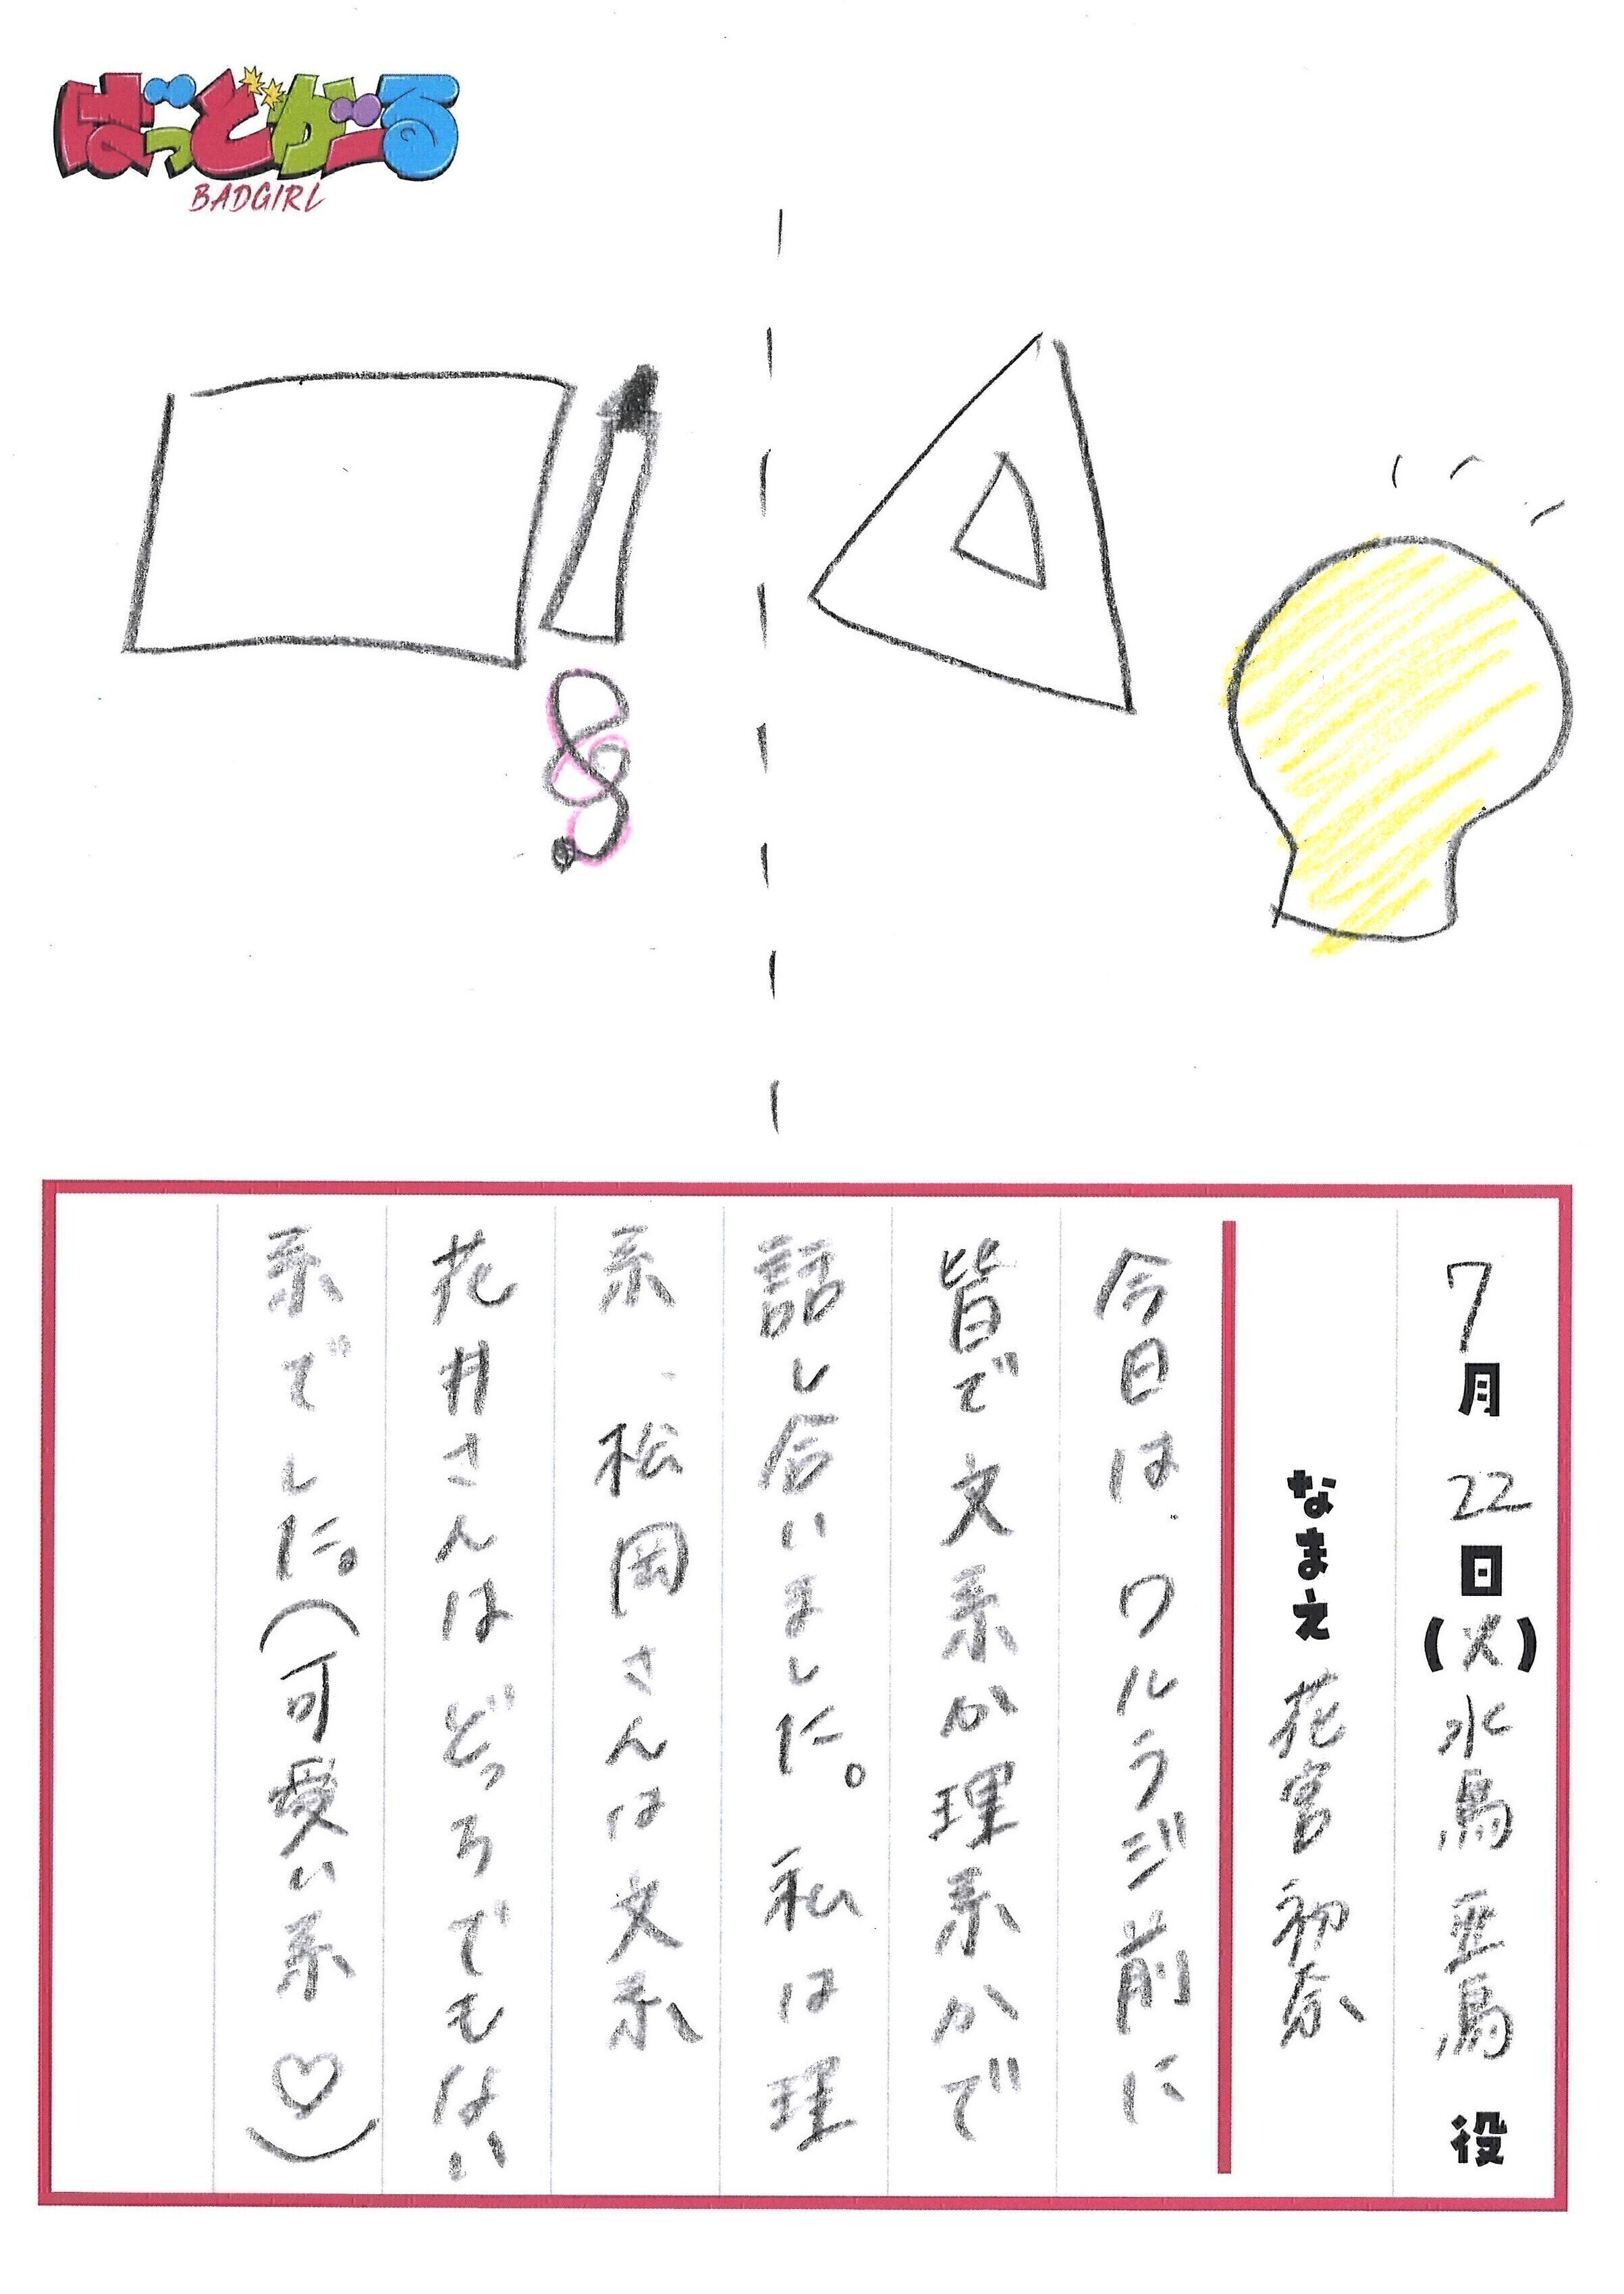 ばっどがーる
BADGIRL
7月22日(火)水鳥 亜鳥 役
なまえ 花宮 初奈
今日は、ワルラジ前に
皆で文系か理系かで
話し合いました。私は理
系、松岡さんは文系
花井さんはどっちでもない
系でした。(可愛い系♡)